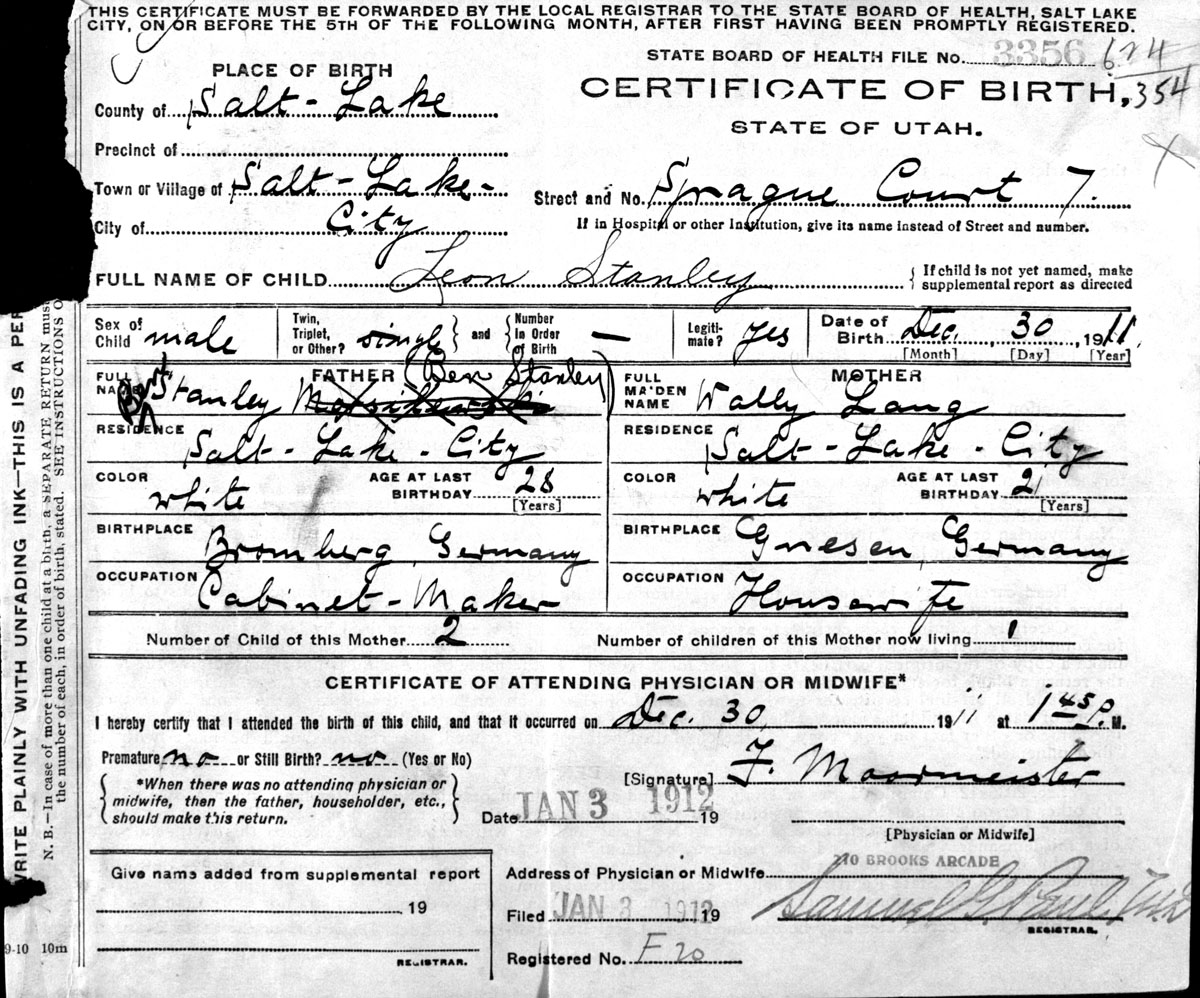 THIS CERTIFICATE MUST BE FORWARDED BY THE LOCAL REGISTRAR TO THE STATE BOARD OF HEALTH, SALT LAKE
CITY, ON OR BEFORE THE 5TH OF THE FOLLOWING MONTH, AFTER FIRST HAVING BEEN PROMPTLY REGISTERED.
STATE BOARD OF HEALTH FILE No. 3356 674
354
PLACE OF BIRTH
CERTIFICATE OF BIRTH,
STATE OF UTAH.
County of Salt-Lake
Precinct of
Town or Village of Salt-Lake-
Street and No. Sprague Court 7.
City of City
If in Hospital or other Institution, give its name instead of Street and number.
FULL NAME OF CHILD Leon Stanley
If child is not yet named, make
supplemental report as directed
Sex of Child male
Twin, Triplet, or Other? single and Number in Order of Birth —
Legitimate? Yes
Date of Birth Dec. 30, 1911.
[Month] [Day] [Year]
FATHER (Ben Stanley)
FULL NAME Stanley
MOTHER
FULL MAIDEN NAME Wally Lang
RESIDENCE Salt-Lake-City
RESIDENCE Salt-Lake-City
COLOR white AGE AT LAST BIRTHDAY 28 [Years]
COLOR white AGE AT LAST BIRTHDAY 21 [Years]
BIRTHPLACE Bromberg, Germany
BIRTHPLACE Gnesen, Germany
OCCUPATION Cabinet-Maker
OCCUPATION Housewife
Number of Child of this Mother 2 Number of children of this Mother now living 1
CERTIFICATE OF ATTENDING PHYSICIAN OR MIDWIFE*
I hereby certify that I attended the birth of this child, and that it occurred on Dec. 30, 1911 at 1 45 P. M.
Premature no or Still Birth? no (Yes or No)
*When there was no attending physician or
midwife, then the father, householder, etc.,
should make this return.
[Signature] F. Moormeister
Date JAN 3 1912 19
[Physician or Midwife]
Give name added from supplemental report
19
REGISTRAR.
210 BROOKS ARCADE
Address of Physician or Midwife
Filed JAN 3 1912 19 Samuel G. Paul, M.D.
REGISTRAR.
Registered No. F 20
9-10 10m
WRITE PLAINLY WITH UNFADING INK—THIS IS A PER
N. B.—In case of more than one child at a birth, a SEPARATE RETURN mus
the number of each, in order of birth, stated. SEE INSTRUCTIONS O